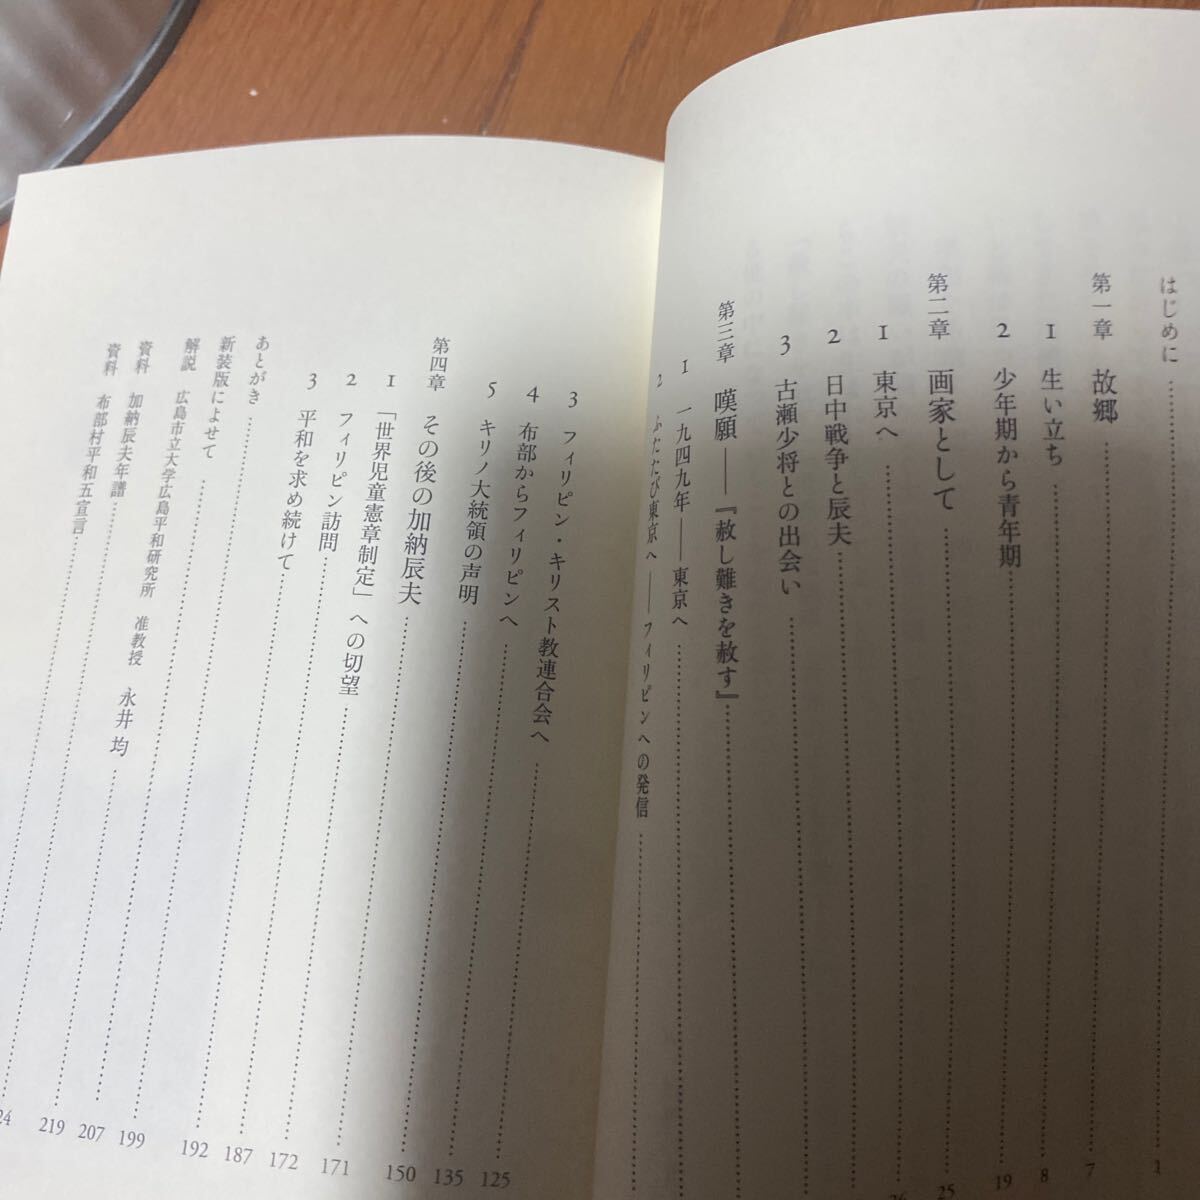 はじめに
1
第一章 故郷
7
1 生い立ち
8
2 少年期から青年期
19
第二章 画家として
25
1 東京へ
26
2 日中戦争と辰夫
3 古瀬少将との出会い
第三章 嘆願――『赦し難きを赦す』
1 一九四九年――東京へ
2 ふたたび東京へ――フィリピンへの発信
3 フィリピン・キリスト教連合会へ
125
4 布部からフィリピンへ
135
5 キリノ大統領の声明
150
第四章 その後の加納辰夫
171
1 「世界児童憲章制定」への切望
172
2 フィリピン訪問
187
3 平和を求め続けて
192
あとがき
199
新装版によせて
207
解説 広島市立大学広島平和研究所 准教授 永井 均
219
資料 加納辰夫年譜
24
資料 布部村平和五宣言